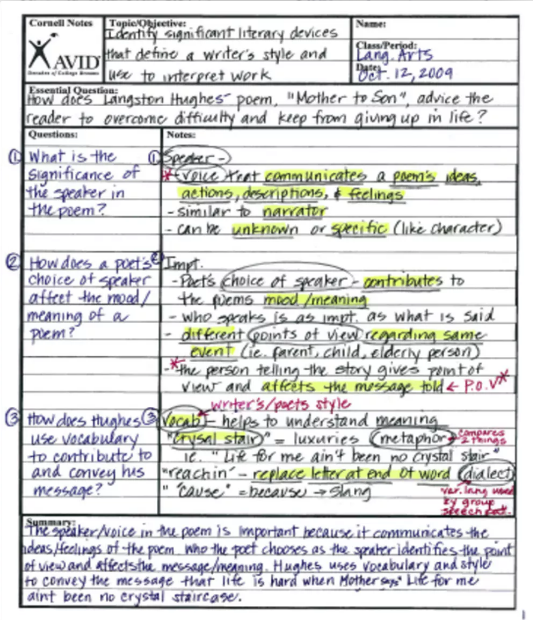 Cornell Notes
Topic/Objective:
Name:
Identify significant literary devices
that define a writer's style and
use to interpret work
AVID
Decades of College Dreams
Class/Period:
Lang. Arts
Date:
Oct. 12, 2009
Essential Question:
How does Langston Hughes' poem, "Mother to Son", advice the
reader to overcome difficulty and keep from giving up in life?
Questions:
Notes:
1 What is the
significance of
the speaker in
the poem?
1 Speaker -
* - voice that communicates a poem's ideas,
actions, descriptions, & feelings
- similar to narrator
- can be unknown or specific (like character)
2 How does a poet's
choice of speaker
affect the mood/
meaning of a
poem?
2 Impt.
- Poet's choice of speaker - contributes to
the poems mood/meaning
- who speaks is as impt. as what is said
- different points of view regarding same
event (ie. parent, child, elderly person)
- * the person telling the story gives point of
view and affects the message told ← P.O.V *
3 How does Hughes
use vocabulary
to contribute to
and convey his
message?
writer's/poets style
3 Vocab - helps to understand meaning
"crysal stair" = luxuries (metaphor) → compares
2 things
ie. "Life for me ain't been no crystal stair"
"reachin" - replace letter at end of word (dialect)
" 'cause" = because → slang
var. lang used
by group
speech
Summary:
The speaker/voice in the poem is important because it communicates the
ideas/feelings of the poem. Who the poet chooses as the speaker identifies the point
of view and affects the message/meaning. Hughes uses vocabulary and style
to convey the message that life is hard when Mother says "Life for me
aint been no crystal staircase.
1